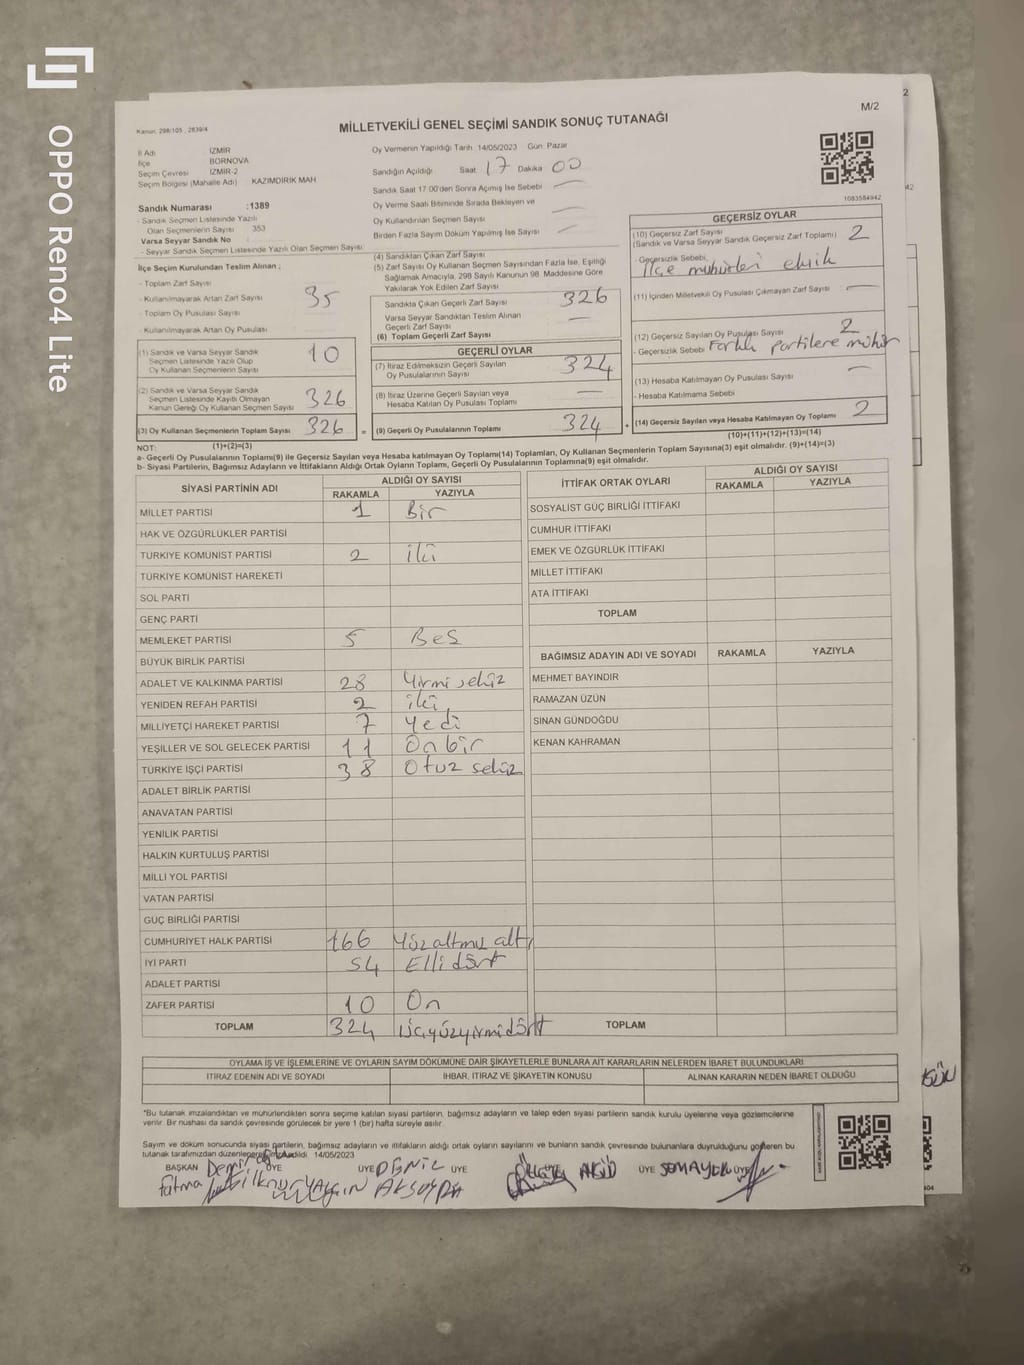 OPPO Reno4 Lite
M/2
Kanun, 298/105 , 2839/4
MİLLETVEKİLİ GENEL SEÇİMİ SANDIK SONUÇ TUTANAĞI
İl Adı İZMİR
İlçe BORNOVA
Seçim Çevresi İZMİR-2
Seçim Bölgesi (Mahalle Adı) KAZIMDİRİK MAH
Sandık Numarası :1389
- Sandık Seçmen Listesinde Yazılı
Olan Seçmenlerin Sayısı 353
Varsa Seyyar Sandık No
- Seyyar Sandık Seçmen Listesinde Yazılı Olan Seçmen Sayısı
Oy Vermenin Yapıldığı Tarih 14/05/2023 Gün Pazar
Sandığın Açıldığı Saat 17 Dakika 00
Sandık Saat 17.00'den Sonra Açılmış İse Sebebi
Oy Verme Saati Bitiminde Sırada Bekleyen ve
Oy Kullandırılan Seçmen Sayısı
Birden Fazla Sayım Döküm Yapılmış İse Sayısı
1083584942
İlçe Seçim Kurulundan Teslim Alınan ;
- Toplam Zarf Sayısı
- Kullanılmayarak Artan Zarf Sayısı 35
- Toplam Oy Pusulası Sayısı
- Kullanılmayarak Artan Oy Pusulası
(1) Sandık ve Varsa Seyyar Sandık
Seçmen Listesinde Yazılı Olup
Oy Kullanan Seçmenlerin Sayısı 10
(2) Sandık ve Varsa Seyyar Sandık
Seçmen Listesinde Kaydı Olmayan
Kanun Gereği Oy Kullanan Seçmen Sayısı 326
(3) Oy Kullanan Seçmenlerin Toplam Sayısı 326 =
(1)+(2)=(3)
(4) Sandıktan Çıkan Zarf Sayısı
(5) Zarf Sayısı Oy Kullanan Seçmen Sayısından Fazla İse, Eşitliği
Sağlamak Amacıyla, 298 Sayılı Kanunun 98. Maddesine Göre
Yakılarak Yok Edilen Zarf Sayısı
Sandıkta Çıkan Geçerli Zarf Sayısı 326
Varsa Seyyar Sandıktan Teslim Alınan
Geçerli Zarf Sayısı
(6) Toplam Geçerli Zarf Sayısı
GEÇERLİ OYLAR
(7) İtiraz Edilmeksizin Geçerli Sayılan
Oy Pusulalarının Sayısı 324
(8) İtiraz Üzerine Geçerli Sayılan veya
Hesaba Katılan Oy Pusulası Toplamı
(9) Geçerli Oy Pusulalarının Toplamı 324 +
GEÇERSİZ OYLAR
(10) Geçersiz Zarf Sayısı
(Sandık ve Varsa Seyyar Sandık Geçersiz Zarf Toplamı) 2
- Geçersizlik Sebebi
ilçe mühürleri eksik
(11) İçinden Milletvekili Oy Pusulası Çıkmayan Zarf Sayısı
(12) Geçersiz Sayılan Oy Pusulası Sayısı 2
- Geçersizlik Sebebi Farklı partilere mühür
(13) Hesaba Katılmayan Oy Pusulası Sayısı
- Hesaba Katılmama Sebebi
(14) Geçersiz Sayılan veya Hesaba Katılmayan Oy Toplamı 2
(10)+(11)+(12)+(13)=(14)
NOT:
a- Geçerli Oy Pusulalarının Toplamı(9) ile Geçersiz Sayılan veya Hesaba katılmayan Oy Toplamı(14) Toplamları, Oy Kullanan Seçmenlerin Toplam Sayısına(3) eşit olmalıdır. (9)+(14)=(3)
b- Siyasi Partilerin, Bağımsız Adayların ve İttifakların Aldığı Ortak Oyların Toplamı, Geçerli Oy Pusulalarının Toplamına(9) eşit olmalıdır.
SİYASİ PARTİNİN ADI ALDIĞI OY SAYISI
RAKAMLA YAZIYLA
MİLLET PARTİSİ 1 Bir
HAK VE ÖZGÜRLÜKLER PARTİSİ
TÜRKİYE KOMÜNİST PARTİSİ 2 iki
TÜRKİYE KOMÜNİST HAREKETİ
SOL PARTİ
GENÇ PARTİ
MEMLEKET PARTİSİ 5 Beş
BÜYÜK BİRLİK PARTİSİ
ADALET VE KALKINMA PARTİSİ 28 Yirmi sekiz
YENİDEN REFAH PARTİSİ 2 iki
MİLLİYETÇİ HAREKET PARTİSİ 7 Yedi
YEŞİLLER VE SOL GELECEK PARTİSİ 11 On bir
TÜRKİYE İŞÇİ PARTİSİ 38 Otuz sekiz
ADALET BİRLİK PARTİSİ
ANAVATAN PARTİSİ
YENİLİK PARTİSİ
HALKIN KURTULUŞ PARTİSİ
MİLLİ YOL PARTİSİ
VATAN PARTİSİ
GÜÇ BİRLİĞİ PARTİSİ
CUMHURİYET HALK PARTİSİ 166 Yüz altmış altı
İYİ PARTİ 54 Elli dört
ADALET PARTİSİ
ZAFER PARTİSİ 10 On
TOPLAM 324 Üçyüzyirmidört
İTTİFAK ORTAK OYLARI ALDIĞI OY SAYISI
RAKAMLA YAZIYLA
SOSYALİST GÜÇ BİRLİĞİ İTTİFAKI
CUMHUR İTTİFAKI
EMEK VE ÖZGÜRLÜK İTTİFAKI
MİLLET İTTİFAKI
ATA İTTİFAKI
TOPLAM
BAĞIMSIZ ADAYIN ADI VE SOYADI RAKAMLA YAZIYLA
MEHMET BAYINDIR
RAMAZAN ÜZÜN
SİNAN GÜNDOĞDU
KENAN KAHRAMAN
TOPLAM
OYLAMA İŞ VE İŞLEMLERİNE VE OYLARIN SAYIM DÖKÜMÜNE DAİR ŞİKAYETLERLE BUNLARA AİT KARARLARIN NELERDEN İBARET BULUNDUKLARI
İTİRAZ EDENİN ADI VE SOYADI İHBAR, İTİRAZ VE ŞİKAYETİN KONUSU ALINAN KARARIN NEDEN İBARET OLDUĞU
*Bu tutanak imzalandıktan ve mühürlendikten sonra seçime katılan siyasi partilerin, bağımsız adayların ve talep eden siyasi partilerin sandık kurulu üyelerine veya gözlemcilerine
verilir. Bir nushası da sandık çevresinde görülecek bir yere 1 (bir) hafta süreyle asılır.
Sayım ve döküm sonucunda siyasi partilerin, bağımsız adayların ve ittifakların aldığı ortak oyların sayılarını ve bunların sandık çevresinde bulunanlara duyrulduğunu gösteren bu
tutanak tarafımızdan 14/05/2023
BAŞKAN ÜYE ÜYE DENİZ ÜYE ÜYE ÜYE
Fatma YALÇIN